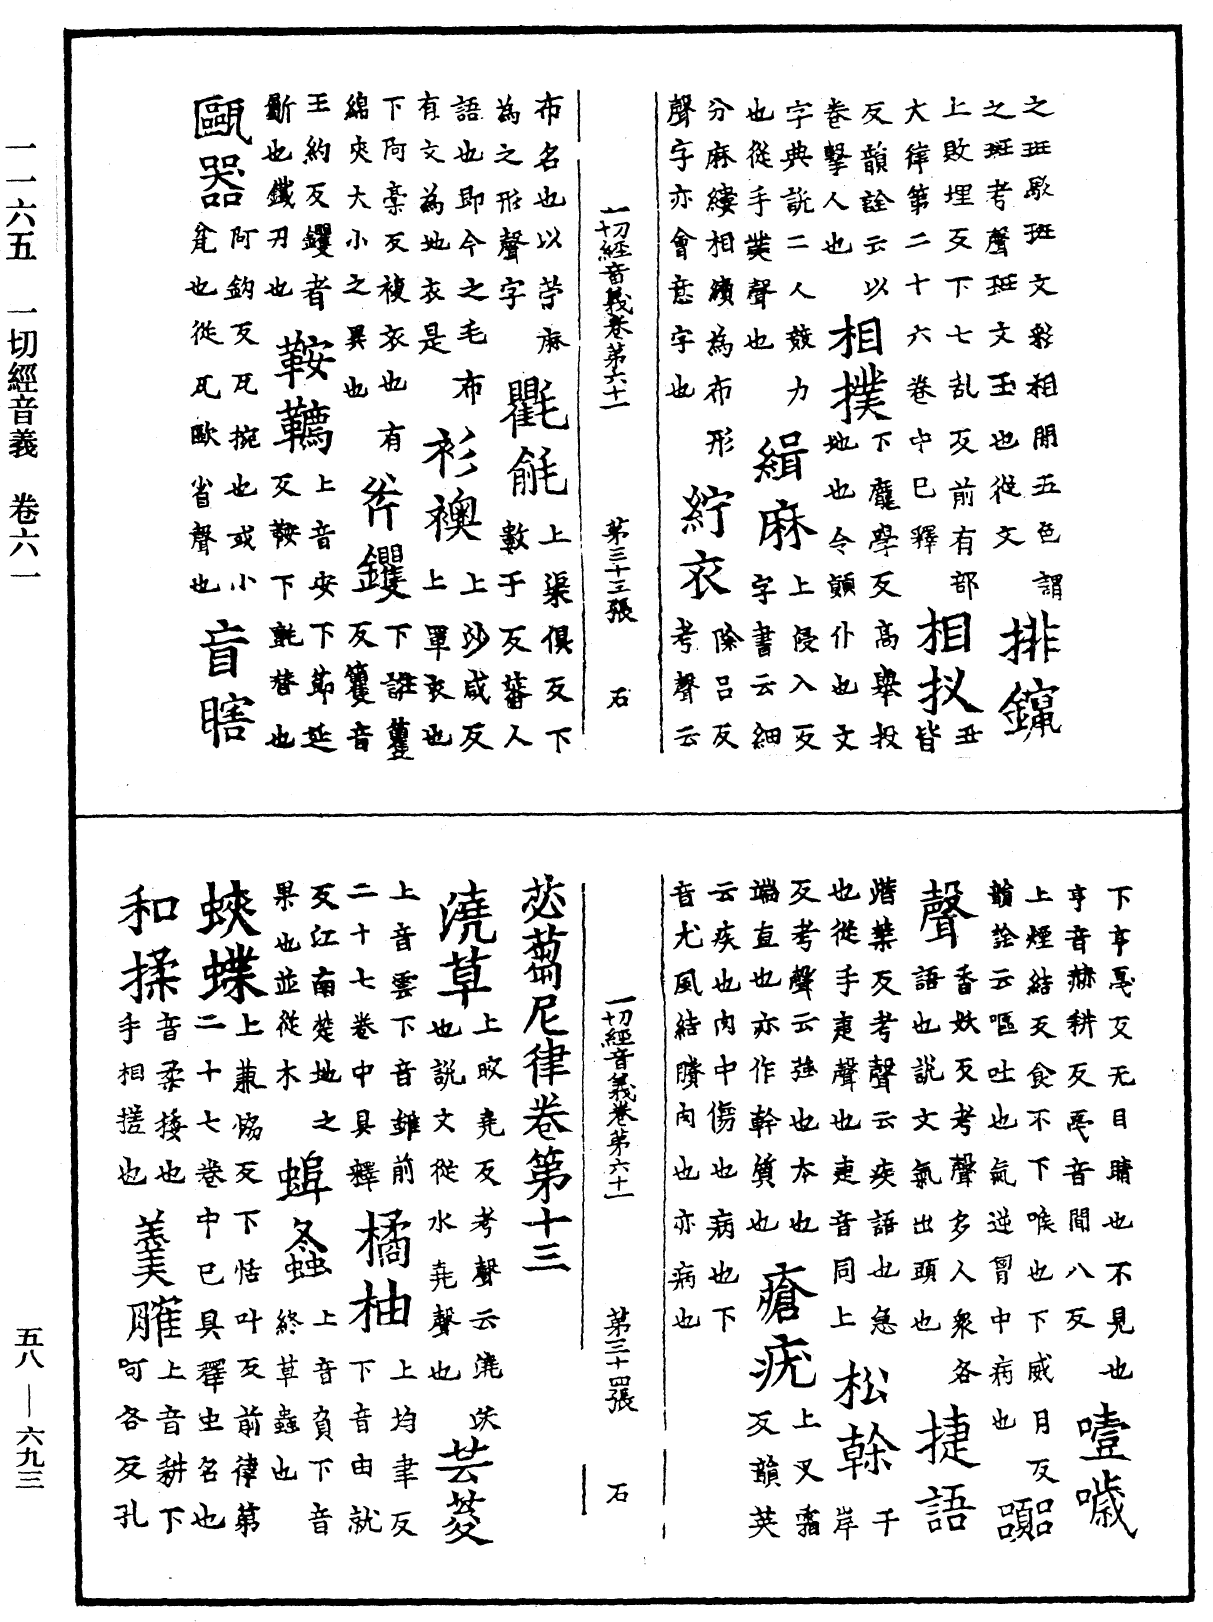 一一六五 一切經音義 卷六一
之斑駁斑文彩相間五色謂
之斑考聲斑文玉也從文 排鑹
上敗埋反下七乱反前有部
大律第二十六卷中已釋 相扠 丑皆
反韻詮云以 相撲 下龐學反高舉投
卷擊人也 地也令顛仆也文
字典說二人競力 緝麻 上侵入反
也從手菐聲也 字書云細
分麻縷相續為布形 紵衣 除呂反
聲字亦會意字也 考聲云
一切經音義卷第六十一 第三十三張 石
布名也以苧麻 氍㲣 上渠俱反下
為之形聲字 數于反蕃人
語也即今之毛布 衫襖 上沙咸反
有文為地衣是 上單衣也
下阿槀反複衣也有 斧钁 下誰籰
綿夾大小之異也 反籰音
王約反钁者 鞍韉 上音安下節延
斸也鐵刃也 反鞍下氈替也
甌器 阿鈎反瓦捥也或小
瓮也從瓦歐省聲也 盲瞎
下亨戞反无目睛也不見也 噎噦
亨音赫耕反戞音間八反
上煙結反食不下喉也下威月反 嚚
韻詮云嘔吐也氣逆胷中病也
聲 香妖反考聲多人衆各 捷語
語也說文氣出頭也
揩葉反考聲云疾語也急 松榦 干岸
也從手疌聲也疌音同上
反考聲云強也本也 瘡疣 上叉霜
端直也亦作幹質也 反韻英
云疾也肉中傷也病也下
音尤風結膹肉也亦病也
一切經音義卷第六十一 第三十四張 石
苾蒭尼律卷第十三
澆草 上皎堯反考聲云澆沃 芸荾
也說文從水堯聲也
上音雲下音雖前 橘柚 上均聿反
二十七卷中具釋 下音由就
反江南楚地之 蝜螽 上音負下音
果也並從木 終草蟲也
蛺蝶 上兼協反下恬叶反前律第
二十七卷中已具釋虫名也
和揉 音柔接也 羹臛 上音耕下
手相搓也 呵各反孔
五八 — 六九三